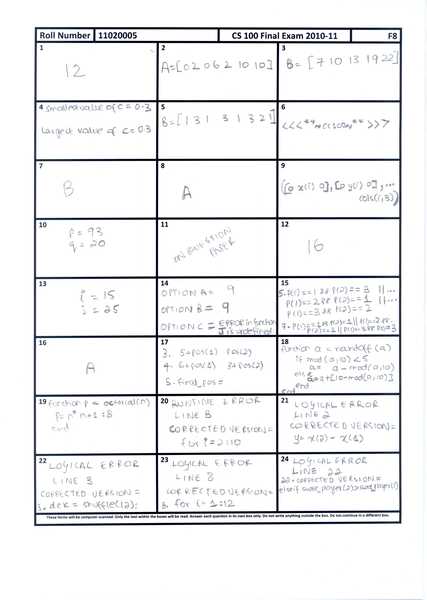 Roll Number 11020005 CS 100 Final Exam 2010-11 F8
1
12
2
A=[02 06 2 10 10]
3
B=[7 10 13 19 22]
4 Smallest value of C = 0.3
Largest value of C = 0.3
5
B=[1 3 1 3 1 3 2 1]
6
7
B
8
A
9
([0 x(i) 0],[0 y(i) 0],...
10
P = 93
q = 20
11
ON QUESTION
PAPER
12
16
13
i = 15
j = 25
14
OPTION A = 9
OPTION B = 9
OPTION C = ERROR in function
15
16
A
17
3. 5+pos(1) pos(2)
4. 6+pos(1) 3+pos(2)
5. final_pos=
18
function a = roundoff(a)
if mod(a,10)<5
a = a - mod(a,10)
else
a = a+[10-mod(a,10)]
end
end
19
end
20 RUNTIME ERROR
LINE 8
CORRECTED VERSION=
for i=2:10
21
LOGICAL ERROR
LINE 2
CORRECTED VERSION=
y = x(2) - x(1)
22
LOGICAL ERROR
LINE 3
CORRECTED VERSION =
23
LOGICAL ERROR
CORRECTED VERSION=
24 LOGICAL ERROR
LINE 22
22- CORRECTED VERSION =
These forms will be computer scanned. Only the text within the boxes will be read. Answer each question in its own box only. Do not write anything outside the box. Do not continue in a different box.